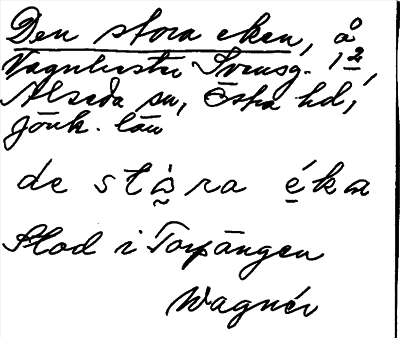 Den stora eken, å
Svensg. 1 2,
Alseda sn, Östra hd,
Jönk. län
de stårα ékα
Stod i Torpängen
Wagnér